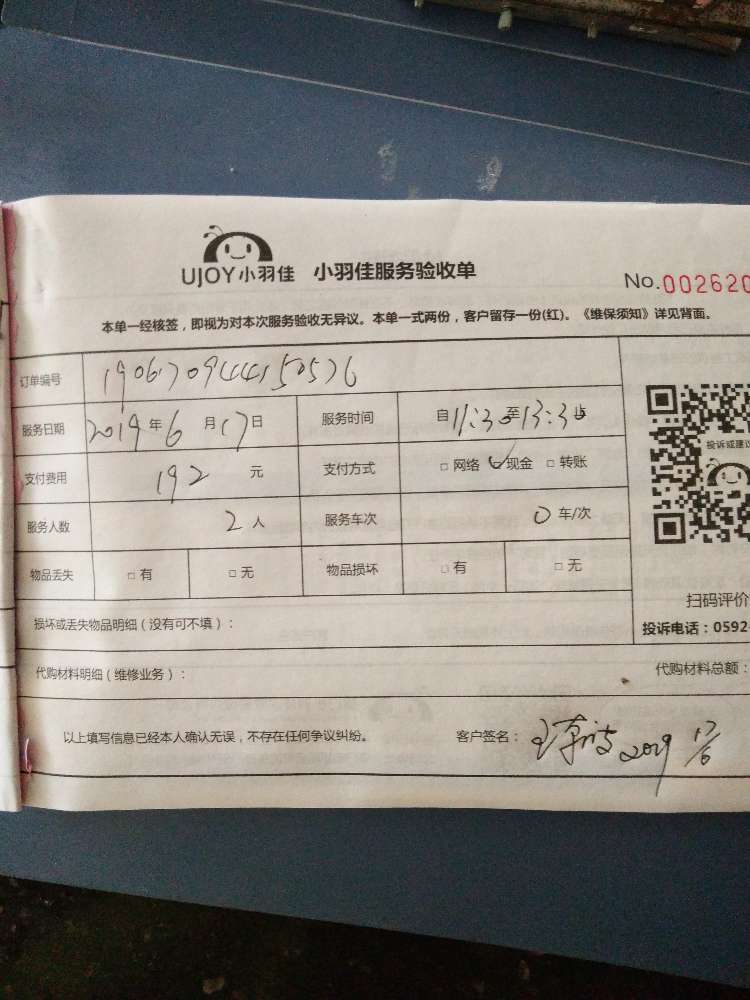 UJOY小羽佳 小羽佳服务验收单 No.002620
本单一经核签，即视为对本次服务验收无异议。本单一式两份，客户留存一份(红)。《维保须知》详见背面。
订单编号 19061709444150576
服务日期 2019年6月17日 服务时间 自11:30至13:30
支付费用 192元 支付方式 □网络 ☑现金 □转账
投诉或建议
服务人数 2人 服务车次 0车/次
物品丢失 □有 □无 物品损坏 □有 □无
扫码评价
损坏或丢失物品明细（没有可不填）：
投诉电话：0592-
代购材料明细（维修业务）： 代购材料总额：
以上填写信息已经本人确认无误，不存在任何争议纠纷。 客户签名： 2019 17/6